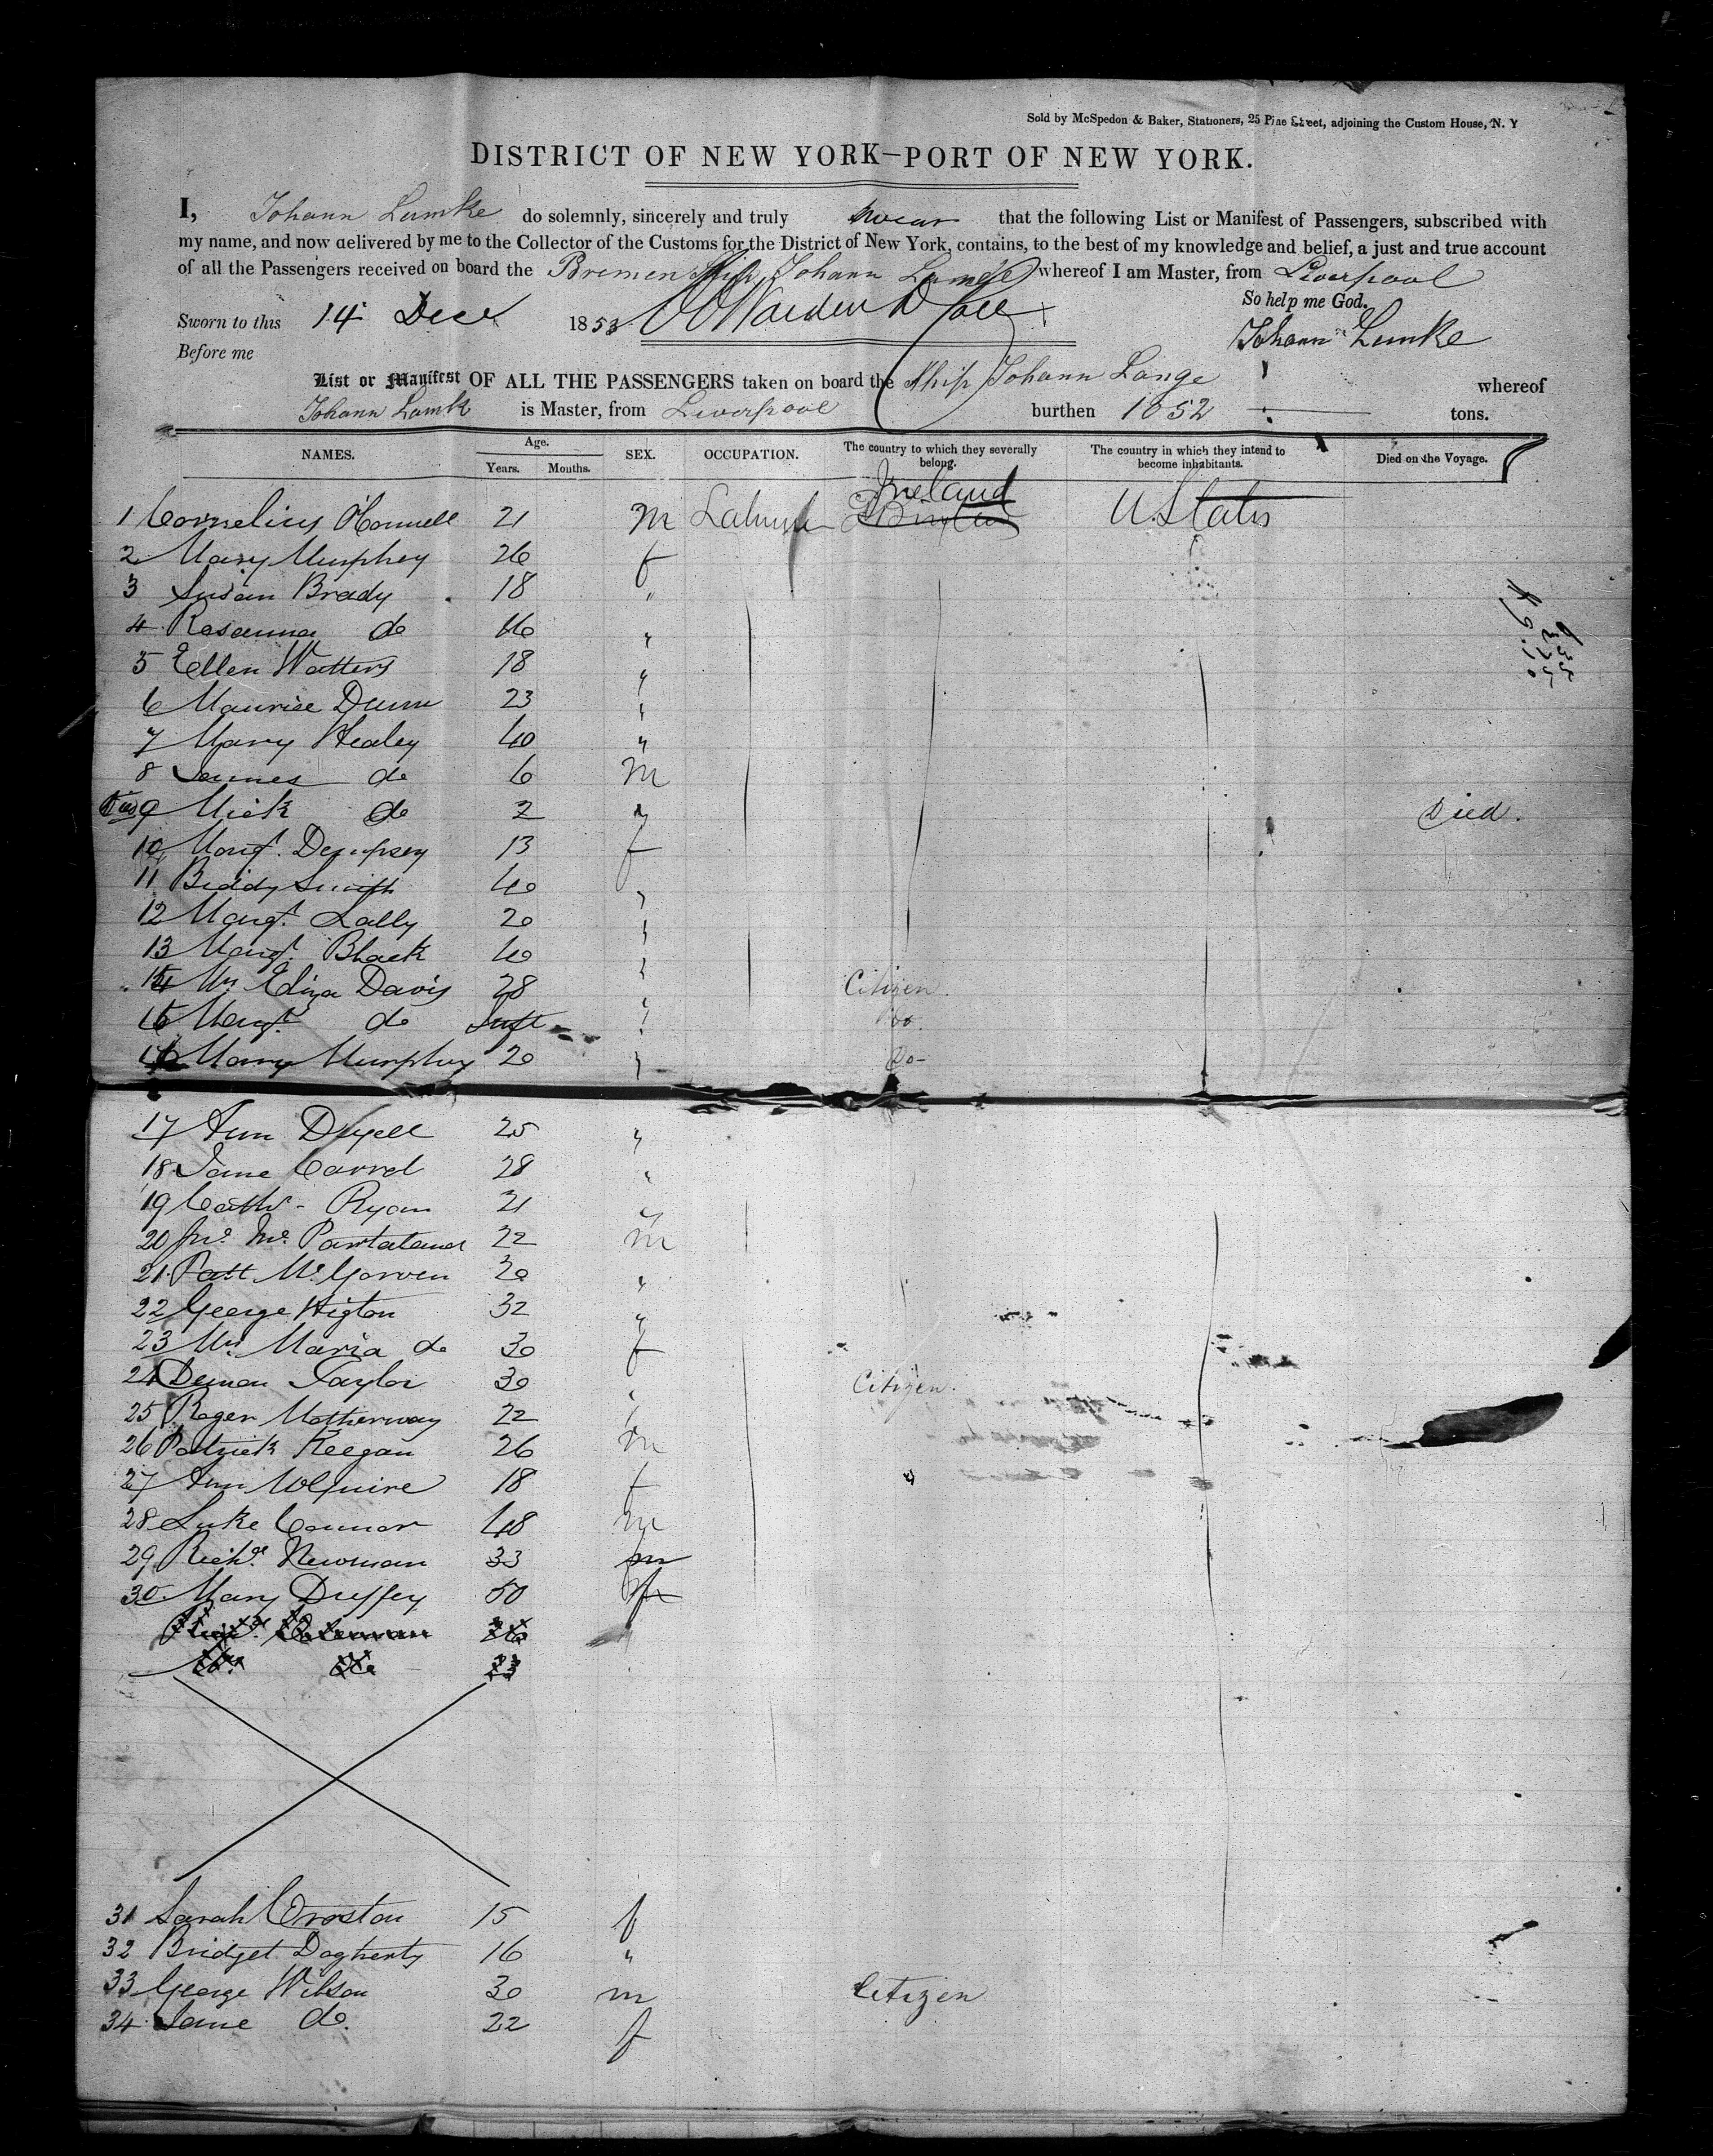 Sold by McSpedon & Baker, Stationers, 25 Pine Street, adjoining the Custom House, N. Y
DISTRICT OF NEW YORK—PORT OF NEW YORK.
I, Johann Lamke do solemnly, sincerely and truly swear that the following List or Manifest of Passengers, subscribed with
my name, and now delivered by me to the Collector of the Customs for the District of New York, contains, to the best of my knowledge and belief, a just and true account
of all the Passengers received on board the Bremen Ship Johann Lange whereof I am Master, from Liverpool
So help me God.
Sworn to this 14 Dec 1853
Johann Lamke
Before me
List or Manifest OF ALL THE PASSENGERS taken on board the Ship Johann Lange whereof
Johann Lamke is Master, from Liverpool burthen 1052 tons.
NAMES. Age. Years. Months. SEX. OCCUPATION. The country to which they severally belong. The country in which they intend to become inhabitants. Died on the Voyage.
Ireland
1 Cornelius O'Connell 21 M Labourer U. States
2 Mary Murphey 26 f
3 Susan Brady 18 "
4 Rosanna do 16 "
5 Ellen Watters 18 "
6 Maurice Dunn 23 "
7 Mary Healey 40 "
8 James do 6 M
9 Mick do 2 " Died.
10 Margt. Dempsey 13 f
11 Biddy Smith 40 "
12 Margt. Lally 20 "
13 Margt. Black 40 "
14 Mrs Eliza Davis 28 " Citizen
15 Margt. do Inft " Do.
16 Mary Murphy 20 " Do-
17 Ann 25 "
18 Jane Carrol 28 "
19 Cathr- Ryan 21 "
20 Jno. Mc. 22 M
21 Patt McGorven 30 "
22 George Higton 32 "
23 Mrs Maria do 30 f
24 Taylor 30 " Citizen.
25 Roger Motherway 22 "
26 Patrick Keegan 26 M
27 Ann McGuire 18 f
28 Luke Connor 48 M
29 Richd. Newman 33 m
30 Mary Duffey 50 f
31 Sarah Croston 15 f
32 Bridget Dogherty 16 "
33 George Wilson 30 m Citizen
34 Jane do. 22 f